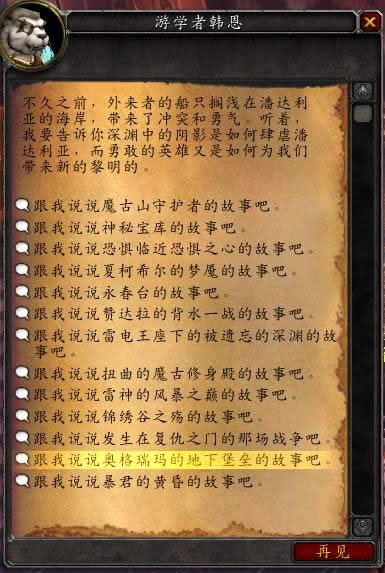 游学者韩恩
不久之前，外来者的船只搁浅在潘达利
亚的海岸，带来了冲突和勇气。听着，
我要告诉你深渊中的阴影是如何肆虐潘
达利亚，而勇敢的英雄又是如何为我们
带来新的黎明的。
跟我说说魔古山守护者的故事吧。
跟我说说神秘宝库的故事吧。
跟我说说恐惧临近恐惧之心的故事吧。
跟我说说夏柯希尔的梦魇的故事吧。
跟我说说永春台的故事吧。
跟我说说赞达拉的背水一战的故事吧。
跟我说说雷电王座下的被遗忘的深渊的故
事吧。
跟我说说扭曲的魔古修身殿的故事吧。
跟我说说雷神的风暴之巅的故事吧。
跟我说说锦绣谷之殇的故事吧。
跟我说说发生在复仇之门的那场战争吧。
跟我说说奥格瑞玛的地下堡垒的故事吧。
跟我说说暴君的黄昏的故事吧。
再见